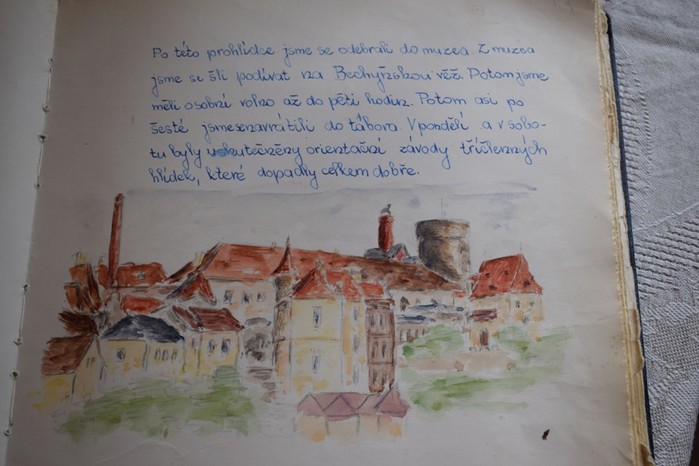 Po této prohlídce jsme se odebrali do muzea. Z muzea
jsme se šli podívat na Bechyňskou věž. Potom jsme
měli osobní volno až do pěti hodin. Potom asi po
šesté jsme se navrátili do tábora. V pondělí a v sobo-
tu byly uskutečněny orientační závody tříčlenných
hlídek, které dopadly celkem dobře.